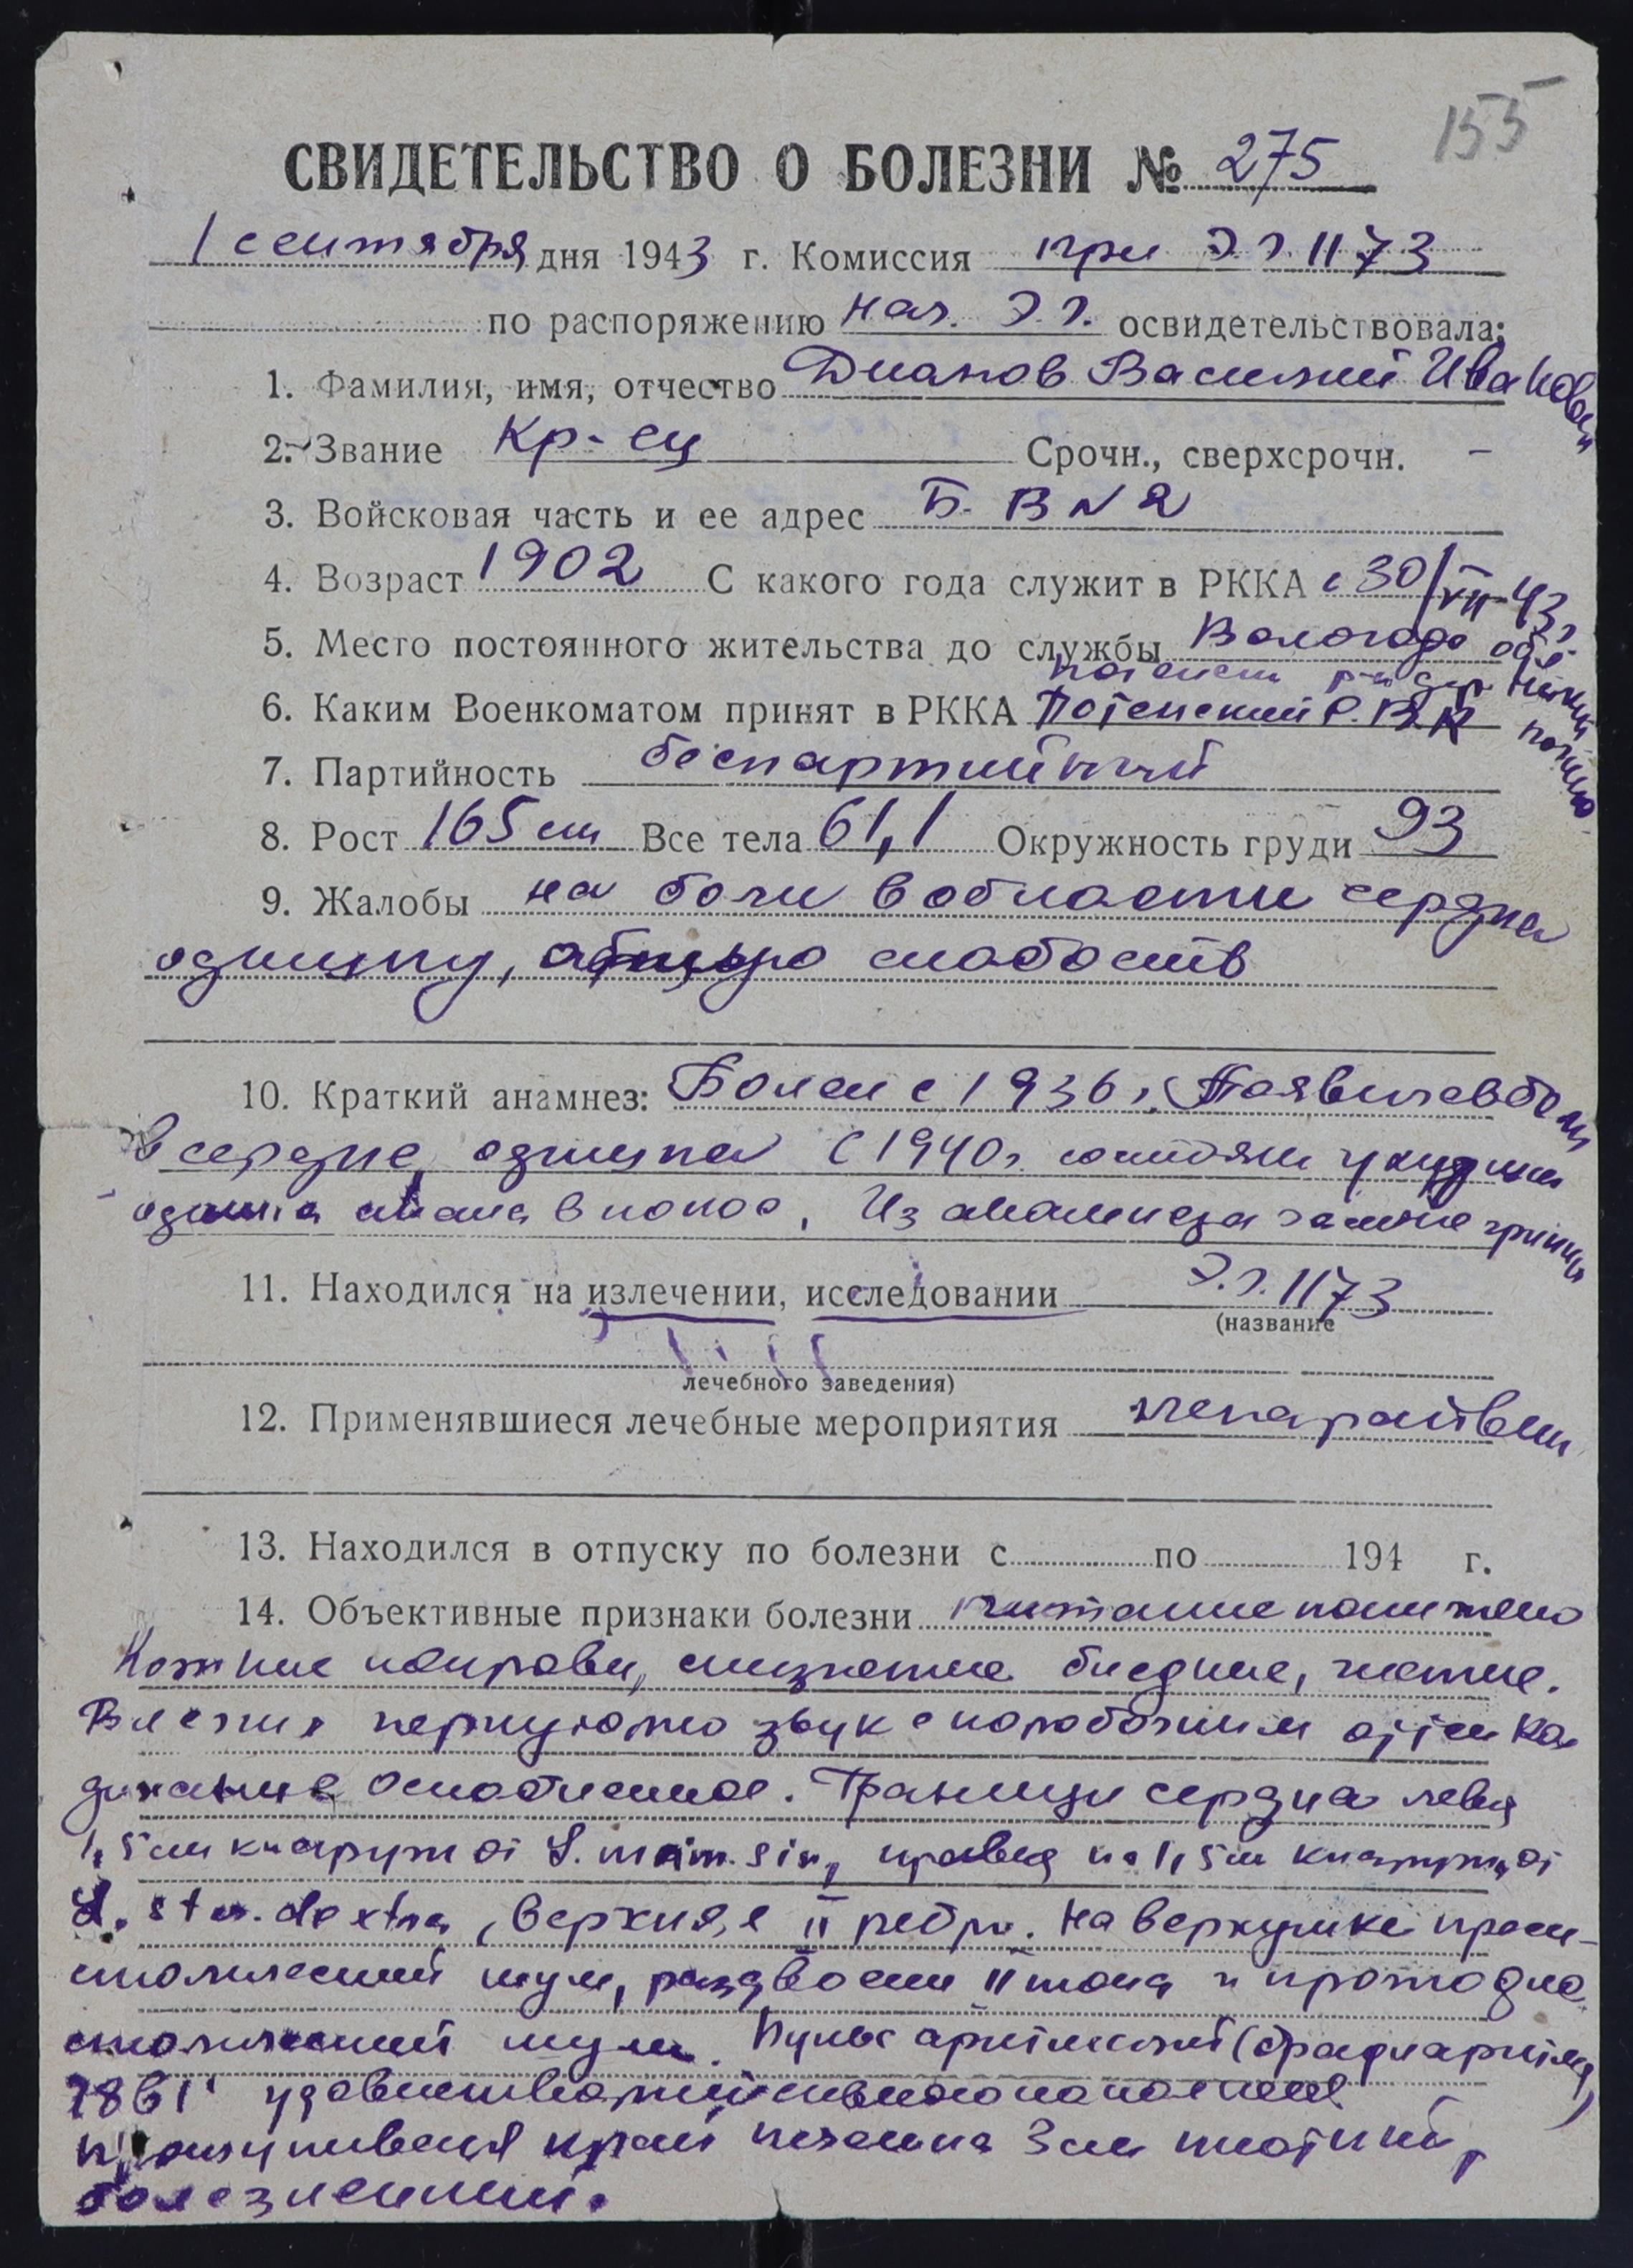 155
СВИДЕТЕЛЬСТВО О БОЛЕЗНИ № 275
1 сентября дня 1943 г. Комиссия при Э.Г. 1173
по распоряжению нач. Э.Г. освидетельствовала:
1. Фамилия, имя, отчество Дианов Василий Иванович
2. Звание Кр-ец Срочн., сверхсрочн. -
3. Войсковая часть и ее адрес Б. В N 2
4. Возраст 1902 С какого года служит в РККА с 30/VII-43г
5. Место постоянного жительства до службы Вологодс обл
р-н дер.
6. Каким Военкоматом принят в РККА Р.В.К
7. Партийность беспартийный
8. Рост 165 см Все тела 61,1 Окружность груди 93
9. Жалобы на боли в области сердца
одышку, общую слабость
10. Краткий анамнез: Болен с 1936 г. Появились боли
в сердце, одышка с 1940г. состояни ухудши
одышка стала в покое. Из анамнеза грипп
11. Находился на излечении, исследовании Э.Г. 1173
(название
лечебного заведения)
12. Применявшиеся лечебные мероприятия
13. Находился в отпуску по болезни с по 194 г.
14. Объективные признаки болезни питание понижено
Кожные покровы, слизистые бледные, чистые.
В легких перкуторно звук с коробочным оттенком
дыхание ослабленное. Границы сердца левая
1,5 см кнаружи от L. mam. sin, правая на 1,5 см кнаружи от
L. ster. dextra, верхняя II ребро. На верхушке преси-
столический шум, раздвоение II тона и протодиа-
столический шум. Пульс аритмичный (брадиаритмия)
удовлетворительного наполнения
Прощупывается край печени на 3 см плотный,
болезненный.